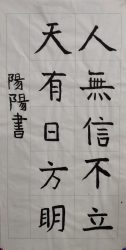 人無信不立
天有日方明
陽陽書